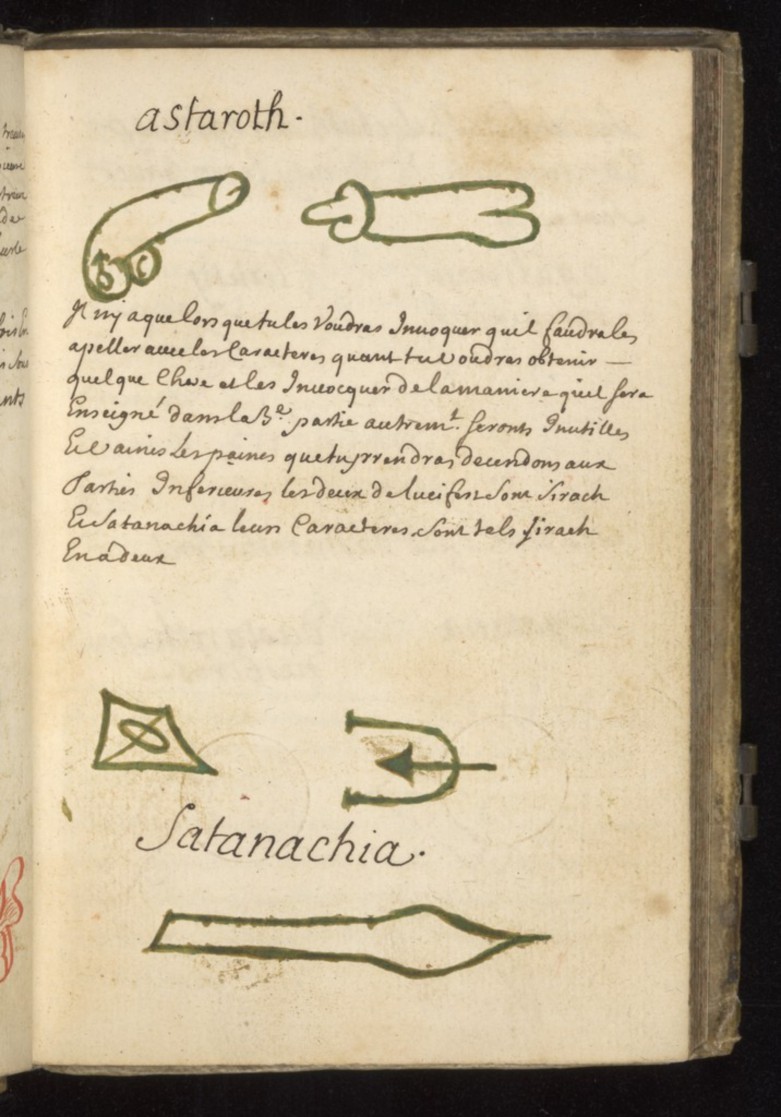 astaroth.
Il ny a que lors que tu les Voudras Inuoquer quil faudra les
apeller auec les Caracteres quant tu Voudras obtenir —
quelque Chose et les Inuocquer de la maniere quil sera
Enseigné dans la 3.e partie autrem.t seronts Inutilles
Et Vaines Les paines que tu prendras decendons aux
Parties Inferieures les deux de lucifer Sont Sirach
Et Satanachia leurs Caracteres Sont tels Sirach
En a deux
Satanachia.